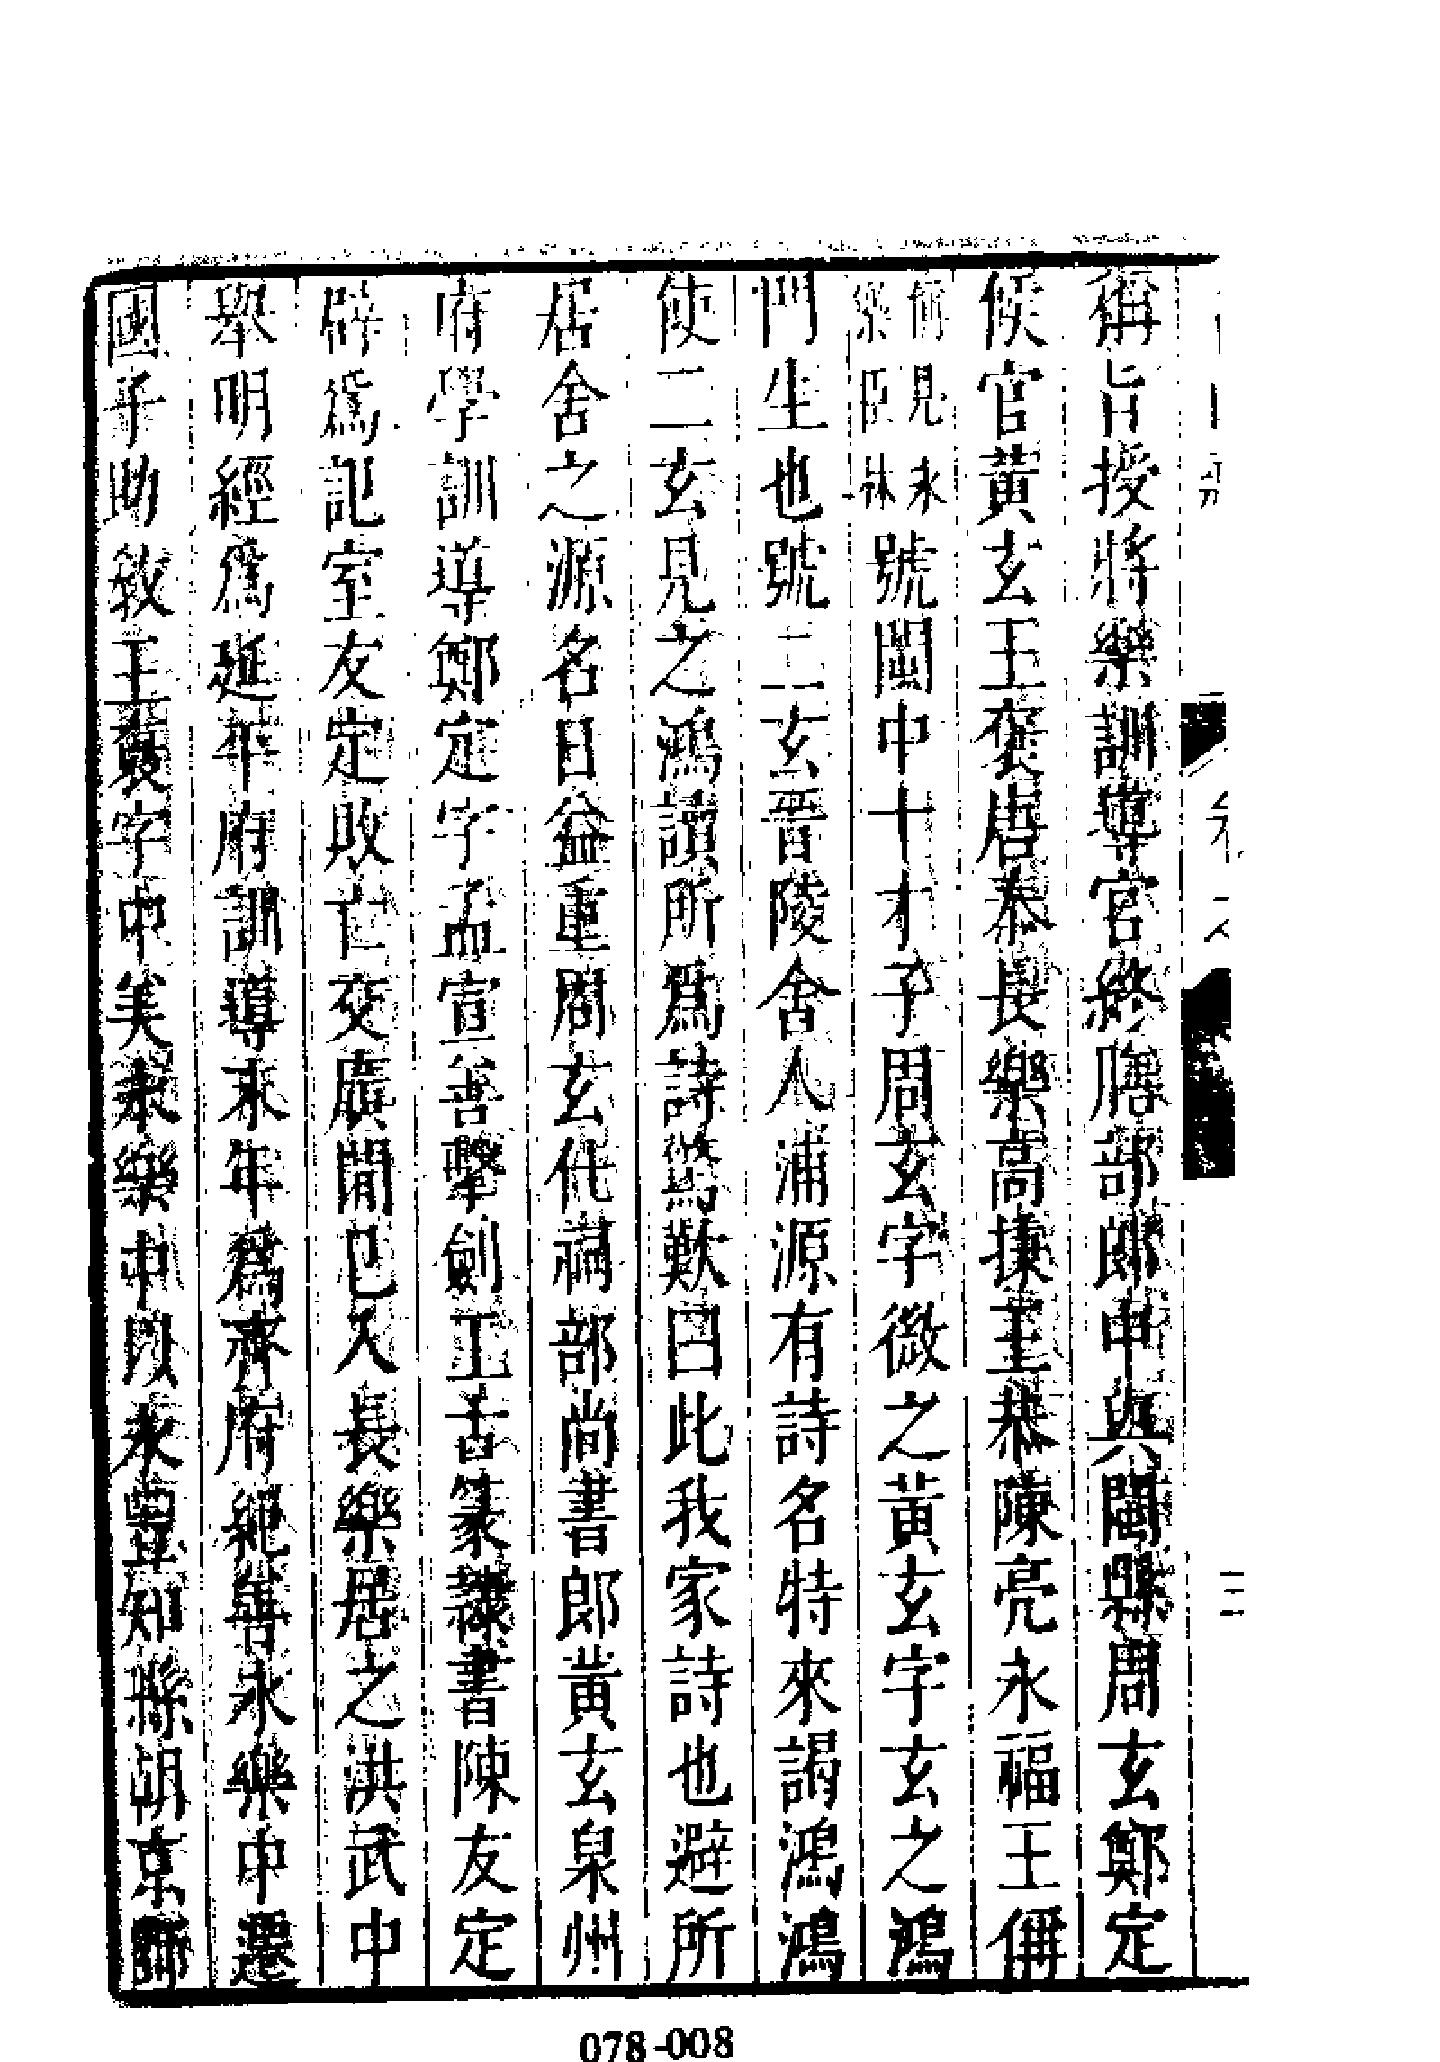 稱旨授將樂訓導官終膳部郎中與閩縣周玄鄭定
候官黃玄王褒唐泰長樂高棅王恭陳亮永福王偁
偁見永樂臣林號閩中十才子周玄字微之黃玄字玄之鴻
門生也號二玄晉陵舍人浦源有詩名特來謁鴻鴻
使二玄見之鴻讀所爲詩驚歎曰此我家詩也避所
居舍之源名日益重周玄仕祠部尚書郎黃玄泉州
府學訓導鄭定字孟宣善擊劍工古篆隸書陳友定
辟爲記室友定敗亡交廣間已久長樂居之洪武中
舉明經爲延平府訓導末年爲齊府紀善永樂中遷
國子助敎王褒字中美永樂中以永豐知縣朝京師
078-008